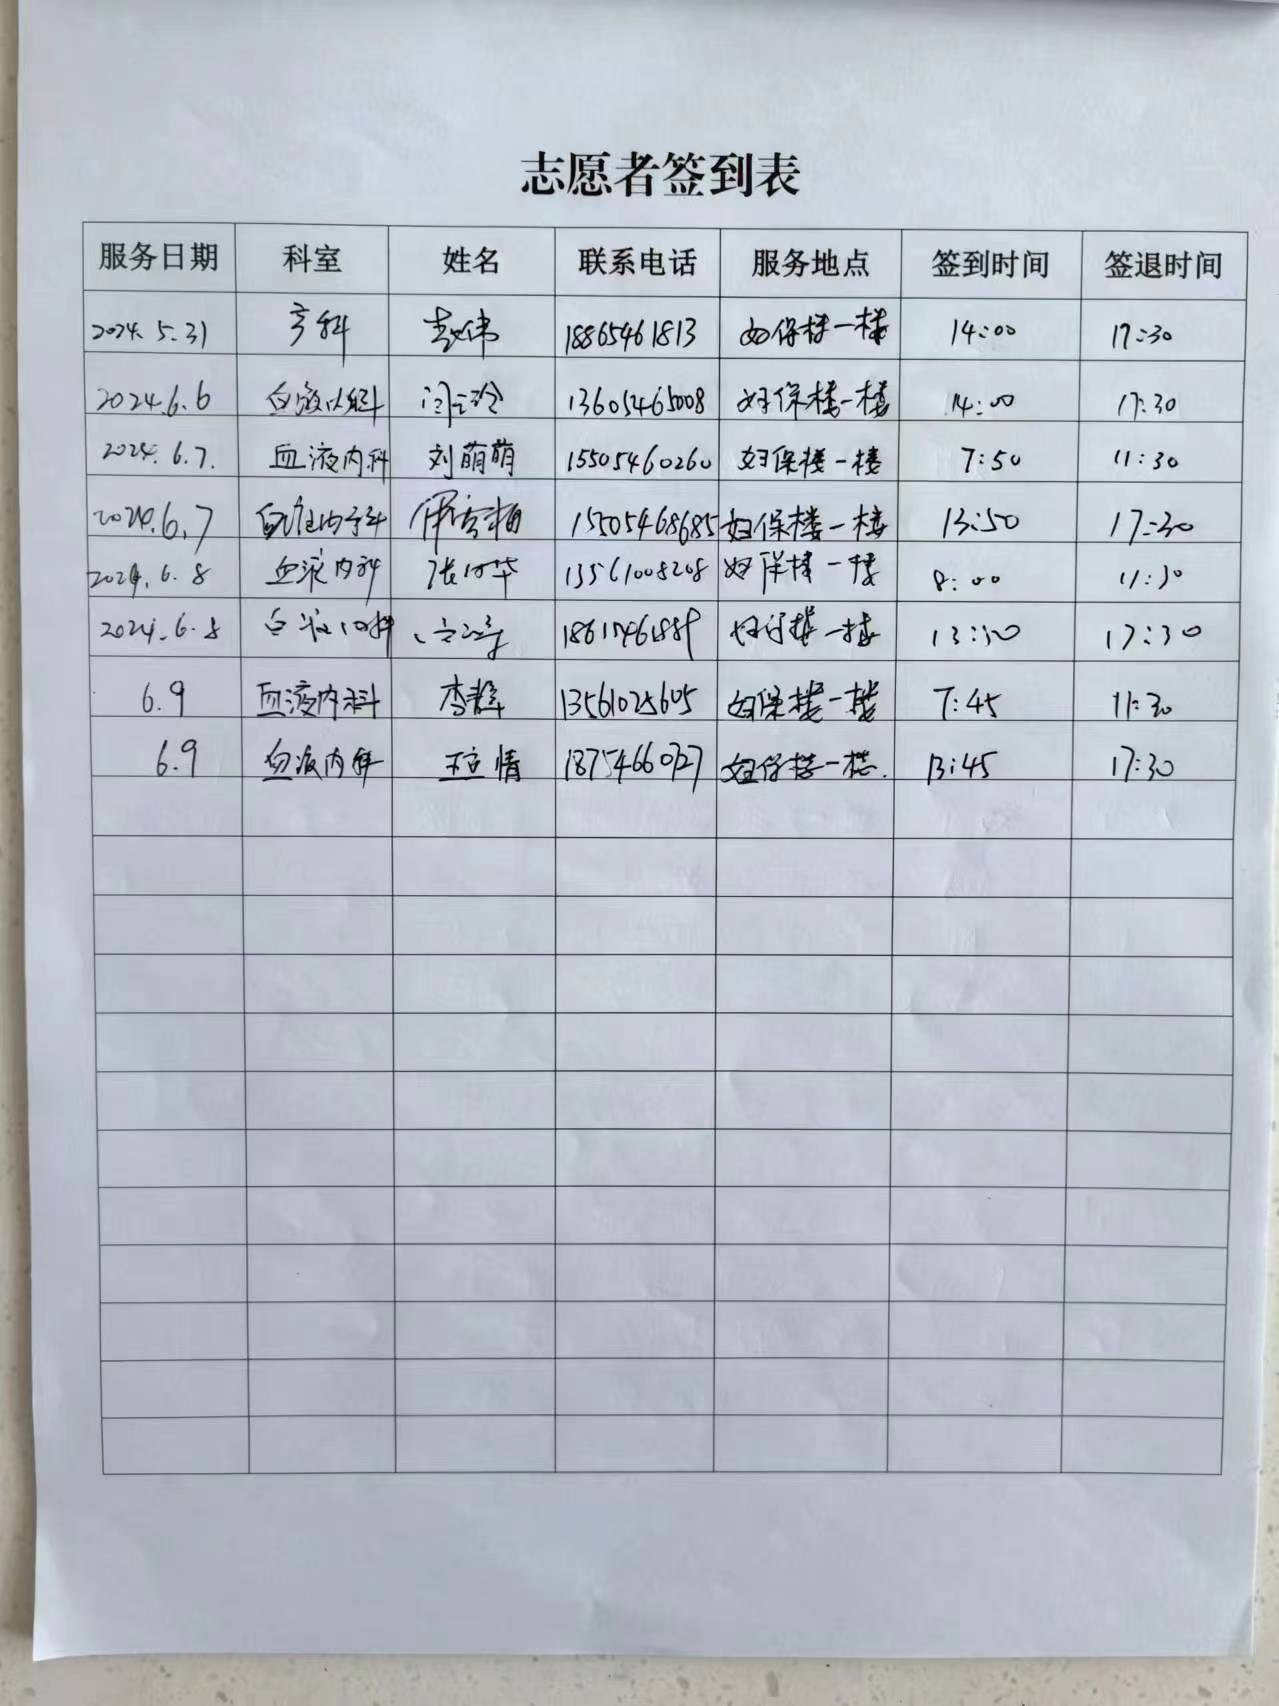 志愿者签到表
服务日期 科室 姓名 联系电话 服务地点 签到时间 签退时间
2024.5.31 产科 赵伟 18865461813 妇保楼一楼 14:00 17:30
2024.6.6 血液内科 13605465008 妇保楼一楼 14:00 17:30
2024.6.7. 血液内科 刘萌萌 15505460260 妇保楼一楼 7:50 11:30
2024.6.7 血液内科 15505468685 妇保楼一楼 13:50 17:30
2024.6.8 血液内科 13561008208 妇保楼一楼 8:00 11:30
2024.6.8 血液内科 妇保楼一楼 17:30
6.9 血液内科 李静 13561025605 妇保楼一楼 7:45 11:30
6.9 血液内科 情 18754660727 妇保楼一楼. 13:45 17:30